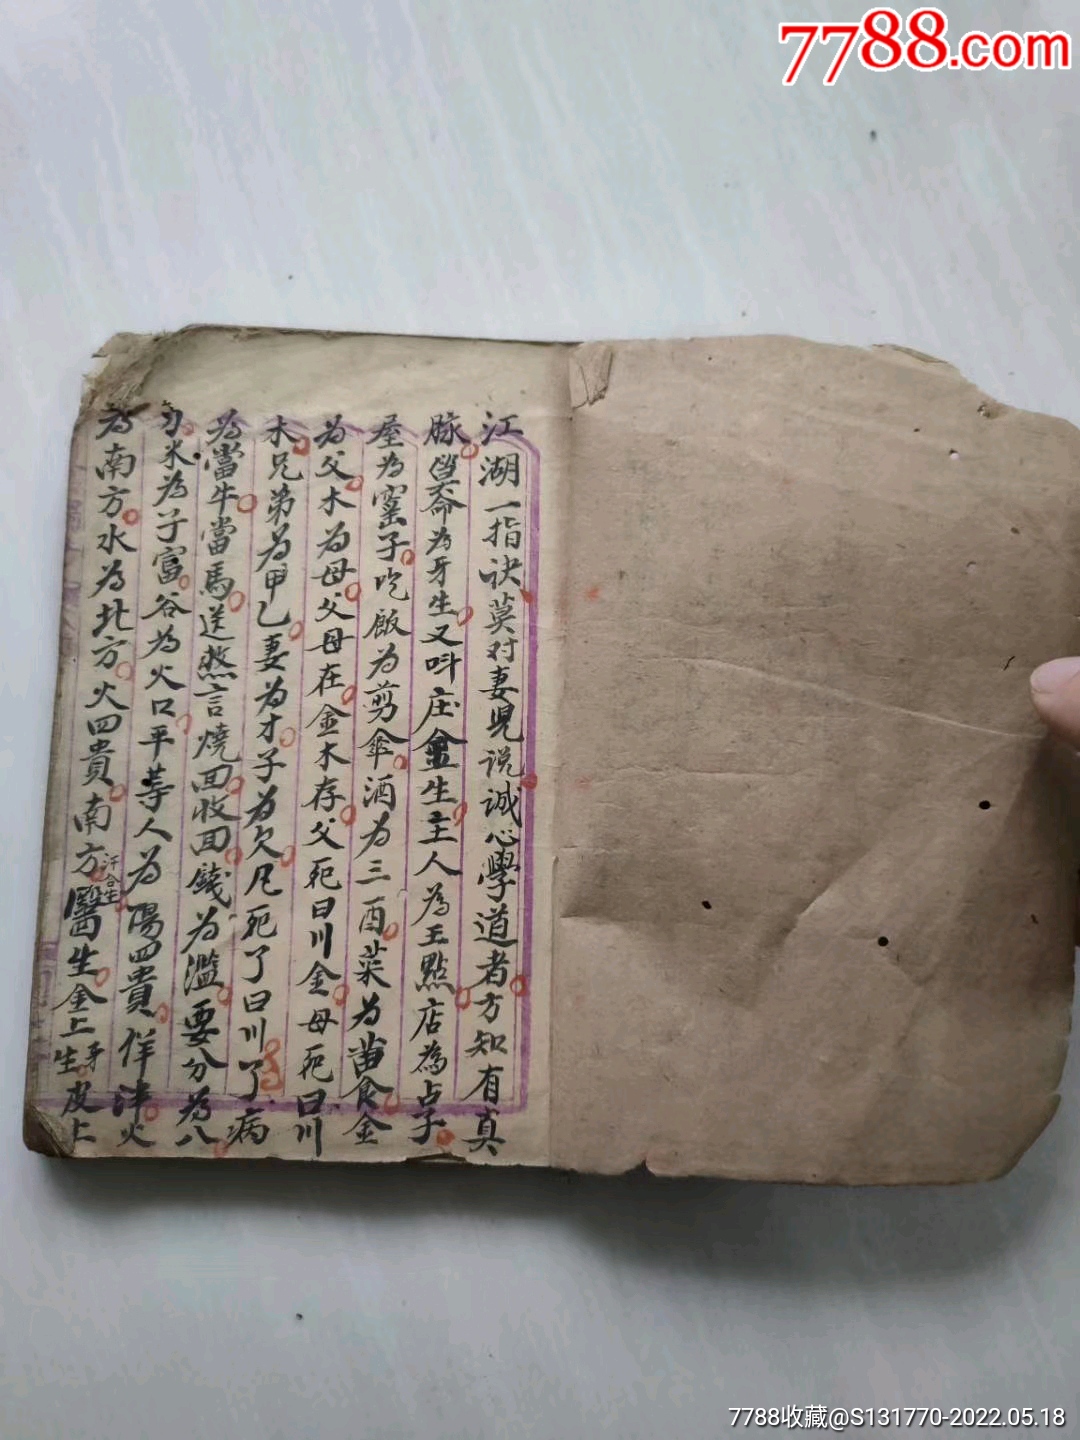 7788.com
江湖一指诀莫对妻児说诚心學道者方知有真
脉為牙生又呌庄金生主人為玉點店為占子
屋為窰子吃飯為剪伞酒为三酉菜为苗食金
为父木为母父母在金木存父死曰川金母死曰川
木兄弟为甲乙妻为才子为欠凡死了曰川了病
為當牛當馬送愁言燒回收回錢为滥要分為八
刁米為子富谷為火口平等人为陽四貴佯津火
為南方水为北方火四貴南方醫生金上生皮上
7788收藏@S131770-2022.05.18